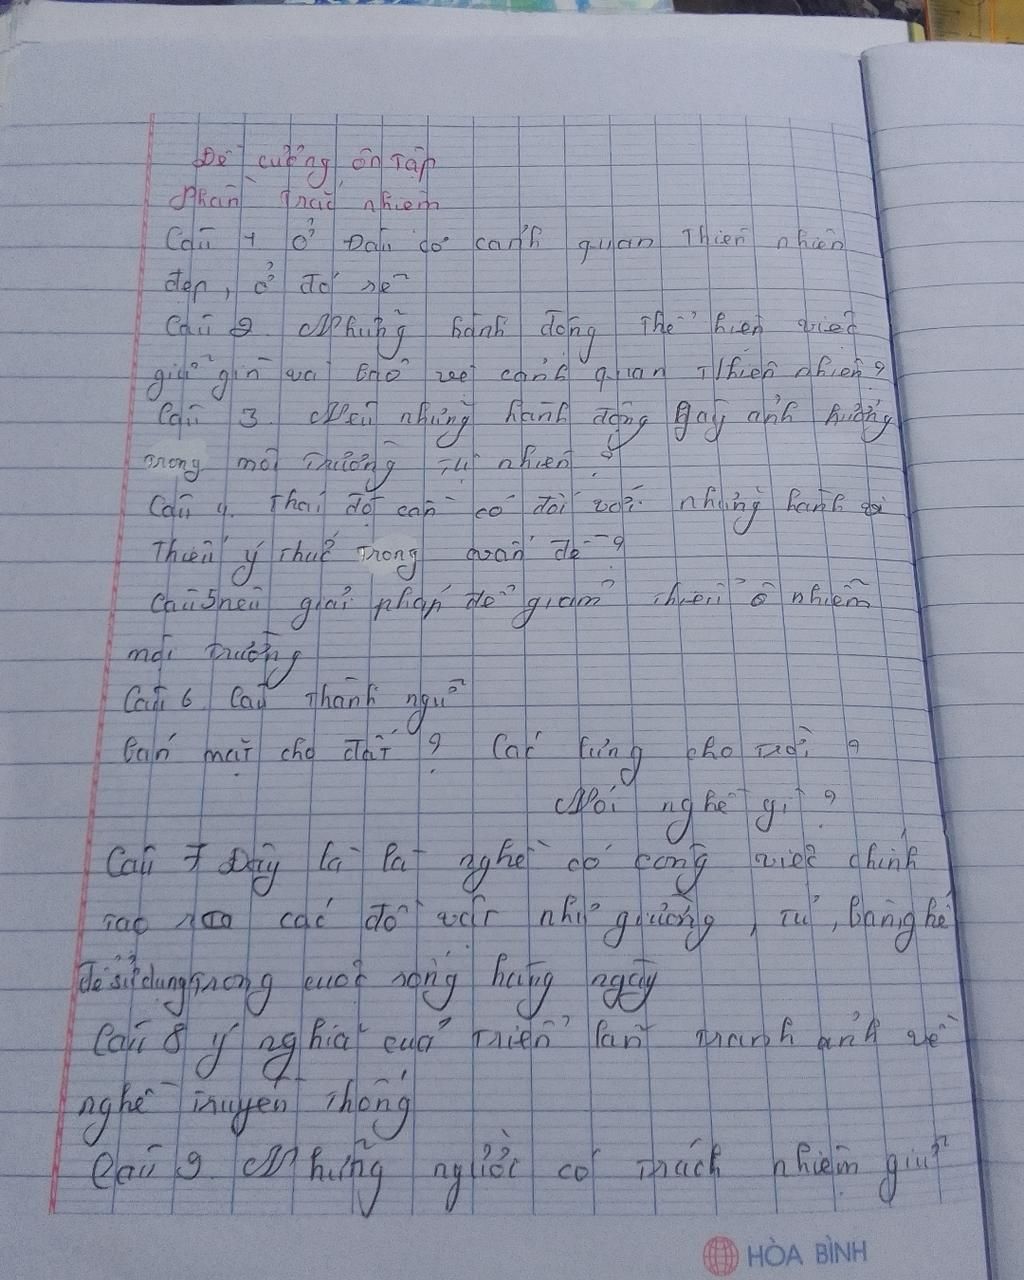 Đề cương ôn tập
Phần trắc nhiệm
Câu 1 ở Đâu có cảnh quan Thiên nhiên
đẹp, ở đó sẽ
Câu 2. Những hành động Thể hiện việc
giữ gìn và bảo vệ cảnh quan Thiên nhiên?
Câu 3. Nêu những hành động gây ảnh hưởng
Trong môi Trường Tự nhiên?
Câu 4. Thái độ cần có đối với những hành vi
Thiếu ý thức Trong quần đề?
Câu5 nêu giải pháp để giảm Thiểu ô nhiễm
môi Trường
Câu 6 Câu Thành ngữ
bán mặt cho đất? Các lưng cho trời?
Nói nghề gì?
Câu 7 Đây là là nghề có công việc chính
Tạo ra các đồ vật như giường, Tủ, bàn,ghế
để sử dụng Trong cuộc sống hàng ngày
Câu 8 ý nghĩa của Triển lãn Tranh ảnh về
nghề Truyền Thống
Câu 9. Những người có Trách nhiệm giữ
HÒA BÌNH